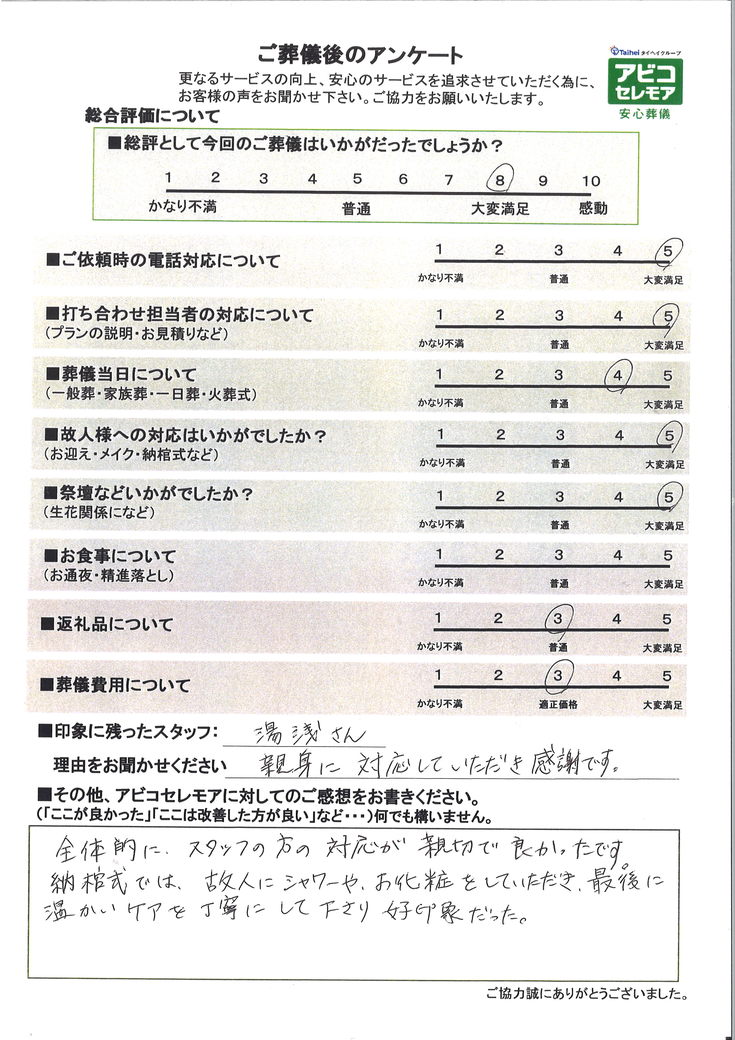 ご葬儀後のアンケート
Taihei タイヘイグループ
アビコ
セレモア
安心葬儀
更なるサービスの向上、安心のサービスを追求させていただく為に、
お客様の声をお聞かせ下さい。ご協力をお願いいたします。
総合評価について
■総評として今回のご葬儀はいかがだったでしょうか?
1 2 3 4 5 6 7 8 9 10
かなり不満 普通 大変満足 感動
■ご依頼時の電話対応について
1 2 3 4 5
かなり不満 普通 大変満足
■打ち合わせ担当者の対応について
(プランの説明・お見積りなど)
1 2 3 4 5
かなり不満 普通 大変満足
■葬儀当日について
(一般葬・家族葬・一日葬・火葬式)
1 2 3 4 5
かなり不満 普通 大変満足
■故人様への対応はいかがでしたか?
(お迎え・メイク・納棺式など)
1 2 3 4 5
かなり不満 普通 大変満足
■祭壇などいかがでしたか?
(生花関係になど)
1 2 3 4 5
かなり不満 普通 大変満足
■お食事について
(お通夜・精進落とし)
1 2 3 4 5
かなり不満 普通 大変満足
■返礼品について
1 2 3 4 5
かなり不満 普通 大変満足
■葬儀費用について
1 2 3 4 5
かなり不満 適正価格 大変満足
■印象に残ったスタッフ: 湯浅さん
理由をお聞かせください 親身に対応していただき感謝です。
■その他、アビコセレモアに対してのご感想をお書きください。
(「ここが良かった」「ここは改善した方が良い」など・・・)何でも構いません。
全体的に、スタッフの方の対応が親切で良かったです。
納棺式では、故人にシャワーや、お化粧をしていただき、最後に
温かいケアを丁寧にして下さり好印象だった。
ご協力誠にありがとうございました。